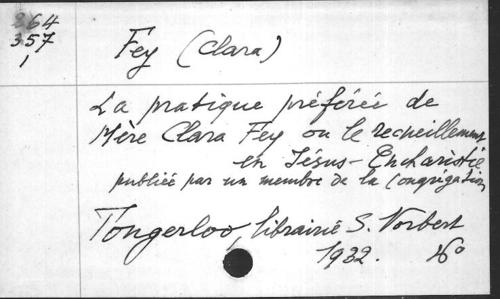 364
357
1
Fey (Clara)
La pratique préférée de
Mère Clara Fey ou le recueillement
en Jésus-Eucharistie
publiée par un membre de la Congrégation
Tongerloo, librairie S. Norbert
1932. 16°